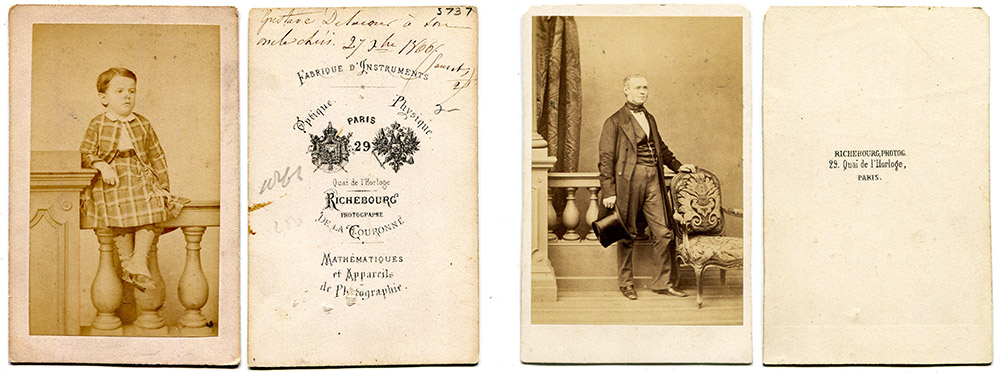 5737
Gustave Delacour à son
oncle chéri. 27 Xbre 1866
FABRIQUE D'INSTRUMENTS
Optique. Physique.
PARIS
29
Quai de l'Horloge
RICHEBOURG
PHOTOGRAPHE
DE LA COURONNE
MATHÉMATIQUES
et Appareils
de Photographie.
RICHEBOURG, PHOTOG.
29. Quai de l'Horloge,
PARIS.